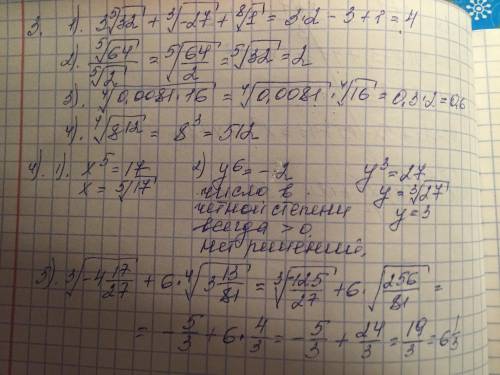 3. 1). 3⁵√32 + ³√-27 + ⁸√1 = 3·2 - 3 + 1 = 4
2). ⁵√64 / ⁵√2 = ⁵√(64/2) = ⁵√32 = 2
3). ⁴√0,0081·16 = ⁴√0,0081 · ⁴√16 = 0,3·2 = 0,6
4). ⁴√8¹² = 8³ = 512
4). 1). x⁵ = 17 2) y⁶ = -2 y³ = 27
x = ⁵√17 число в y = ³√27
чётной степени y = 3
всегда > 0
нет решений.
5). ³√-4 17/27 + 6·⁴√3 13/81 = ³√-125/27 + 6·√256/81 =
= -5/3 + 6·4/3 = -5/3 + 24/3 = 19/3 = 6 1/3